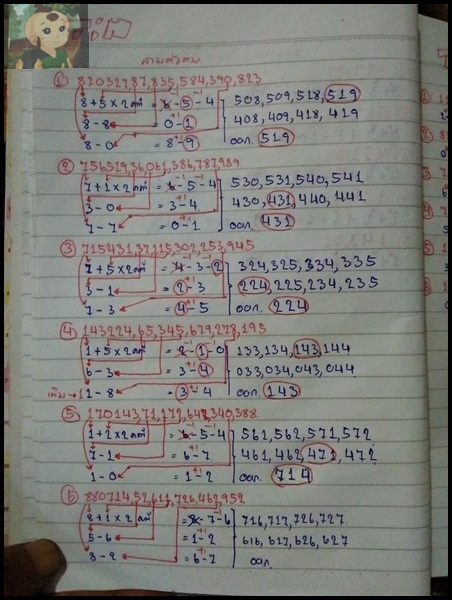 สามตัวตรง
① 820327,87,835,584,390,823
8+5×2 = 6-5-4 508,509,518,519
8-8 = 0-1 408,409,418,419
8-0 = 8-9 ออก. 519
② 756519,36,061,386,787,989
7+1×2 = 6-5-4 530,531,540,541
3-0 = 3-4 430,431,440,441
7-7 = 0-1 ออก. 431
③ 715431,37,115,302,253,945
7+5×2 = 4-3-2 324,325,334,335
3-1 = 2-3 224,225,234,235
7-3 = 4-5 ออก. 224
④ 143224,65,345,679,278,195
1+5×2 = 2-1-0 133,134,143,144
6-3 = 3-4 033,034,043,044
1-8 = 3-4 ออก. 143
⑤ 170143,71,172,642,340,388
1+2×2 = 6-5-4 561,562,571,572
7-1 = 6-7 461,462,471,472
1-0 = 1-2 ออก. 714
⑥ 880714,52,611,726,462,952
8+1×2 = 8-7-6 716,717,726,727
5-6 = 1-2 616,617,626,627
8-2 = 6-7 ออก.